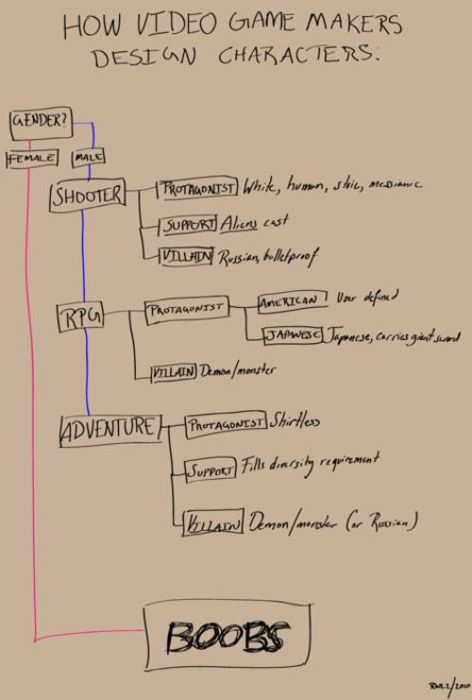 HOW VIDEO GAME MAKERS
DESIGN CHARACTERS:
GENDER?
FEMALE
MALE
SHOOTER
PROTAGONIST White, human, stoic, messianic
SUPPORT Aliens cast
VILLAIN Russian, bulletproof
RPG
PROTAGONIST
AMERICAN User defined
JAPANESE Japanese, carries giant sword
VILLAIN Demon/monster
ADVENTURE
PROTAGONIST Shirtless
SUPPORT Fills diversity requirement
VILLAIN Demon/monster (or Russian)
BOOBS